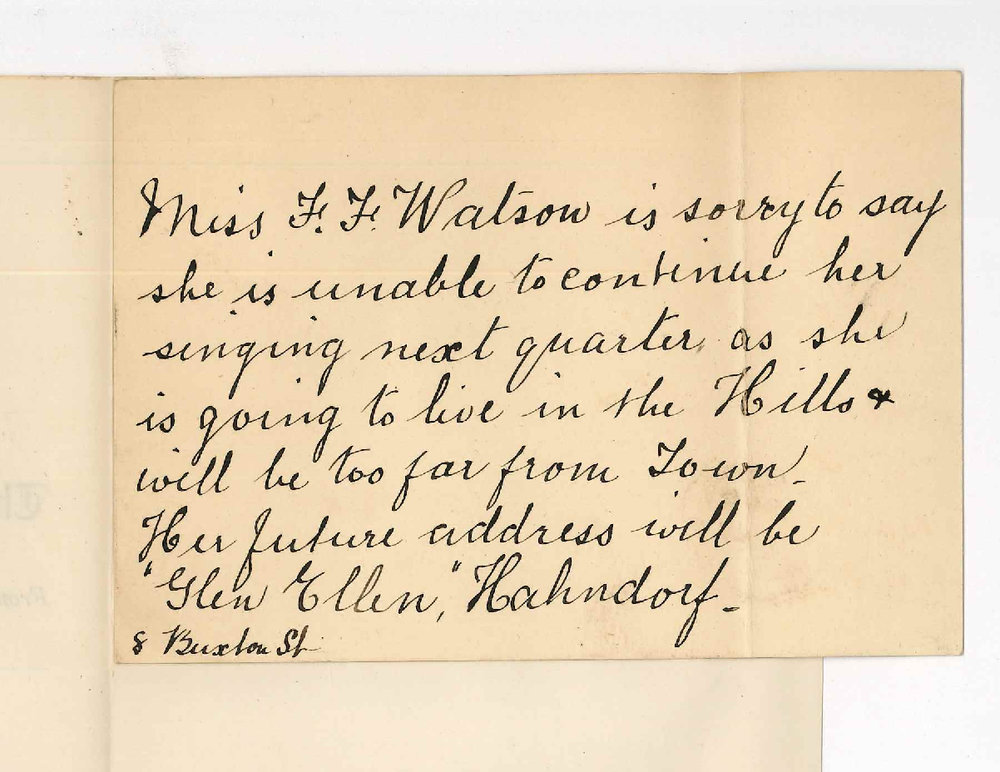 Miss F. F. Watson is sorry to say
she is unable to continue her
singing next quarter as she
is going to live in the Hills &
will be too far from Town.
Her future address will be
"Glen Ellen," Hahndorf.
8 Buxton St.